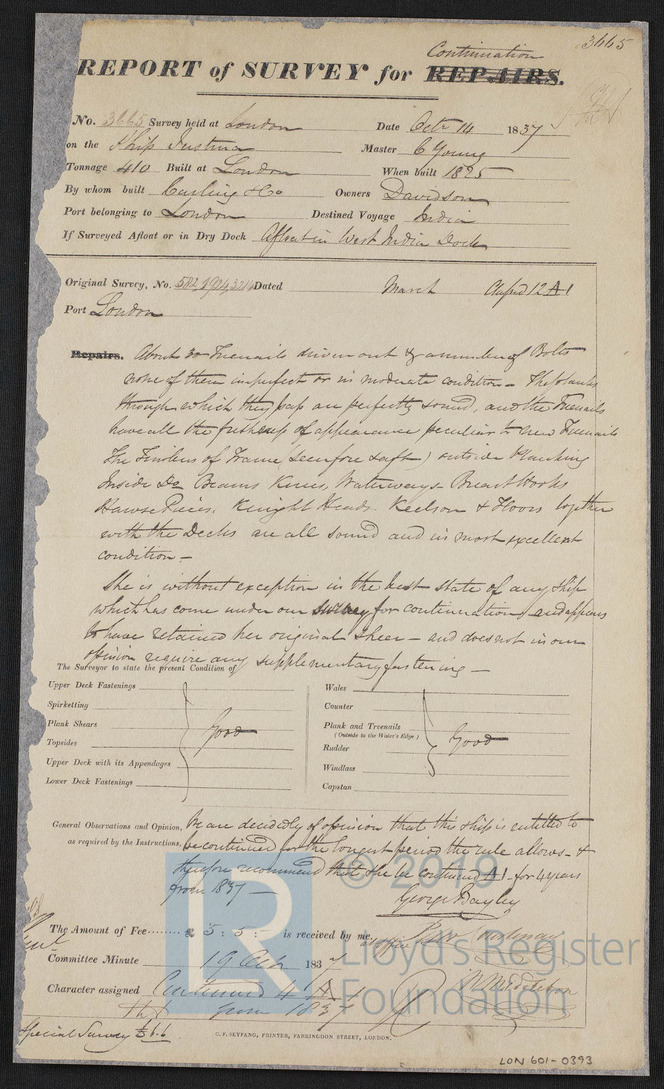 3665
Continuation
REPORT of SURVEY for REPAIRS.
No. 3665 Survey held at London Date Octr 14 1837
on the Ship Justina Master C Young
Tonnage 410 Built at London When built 1825
By whom built Curling & Co Owners Davidson
Port belonging to London Destined Voyage India
If Surveyed Afloat or in Dry Dock Afloat in West India Dock
Original Survey, No. Dated March Classed 12 A1
Port London
Repairs. About 30 Treenails driven out & a number of Bolts
none of them imperfect or in moderate condition - The Planks
through which they pass are perfectly sound, and the Treenails
have all the freshness of appearance peculiar to new Treenails
The Timbers of Frame seen fore & aft, outside Planking
Inside Do Beams Knees, Waterways Breast Hooks
Hawse Pieces, Knight Heads. Keelson & Floors together
with the Decks are all sound and in most excellent
condition -
She is without exception in the best state of any Ship
which has come under our survey for continuation, and appears
to have retained her original sheer - and does not in our
opinion require any supplementary fastening -
The Surveyor to state the present Condition of
Upper Deck Fastenings
Spirketting
Plank Shears
Topsides
Upper Deck with its Appendages
Lower Deck Fastenings
Good
Wales
Counter
Plank and Treenails
(Outside to the Water's Edge)
Rudder
Windlass
Capstan
Good
General Observations and Opinion, We are decidedly of opinion that this ship is entitled to
as required by the Instructions. be continued for the longest period the rule allows - &
therefore recommend that she be continued A1 for 4 years
from 1837 -
George Bayley
The Amount of Fee £ 5 : 5 : is received by me,
Committee Minute 19 Octr 1837
Character assigned Continued 4 A 1
from 1837
Special Survey £6.6
C. F. SEYFANG, PRINTER, FARRINGDON STREET, LONDON.
LON 601-0393
© 2019
Lloyd's Register
Foundation
LR